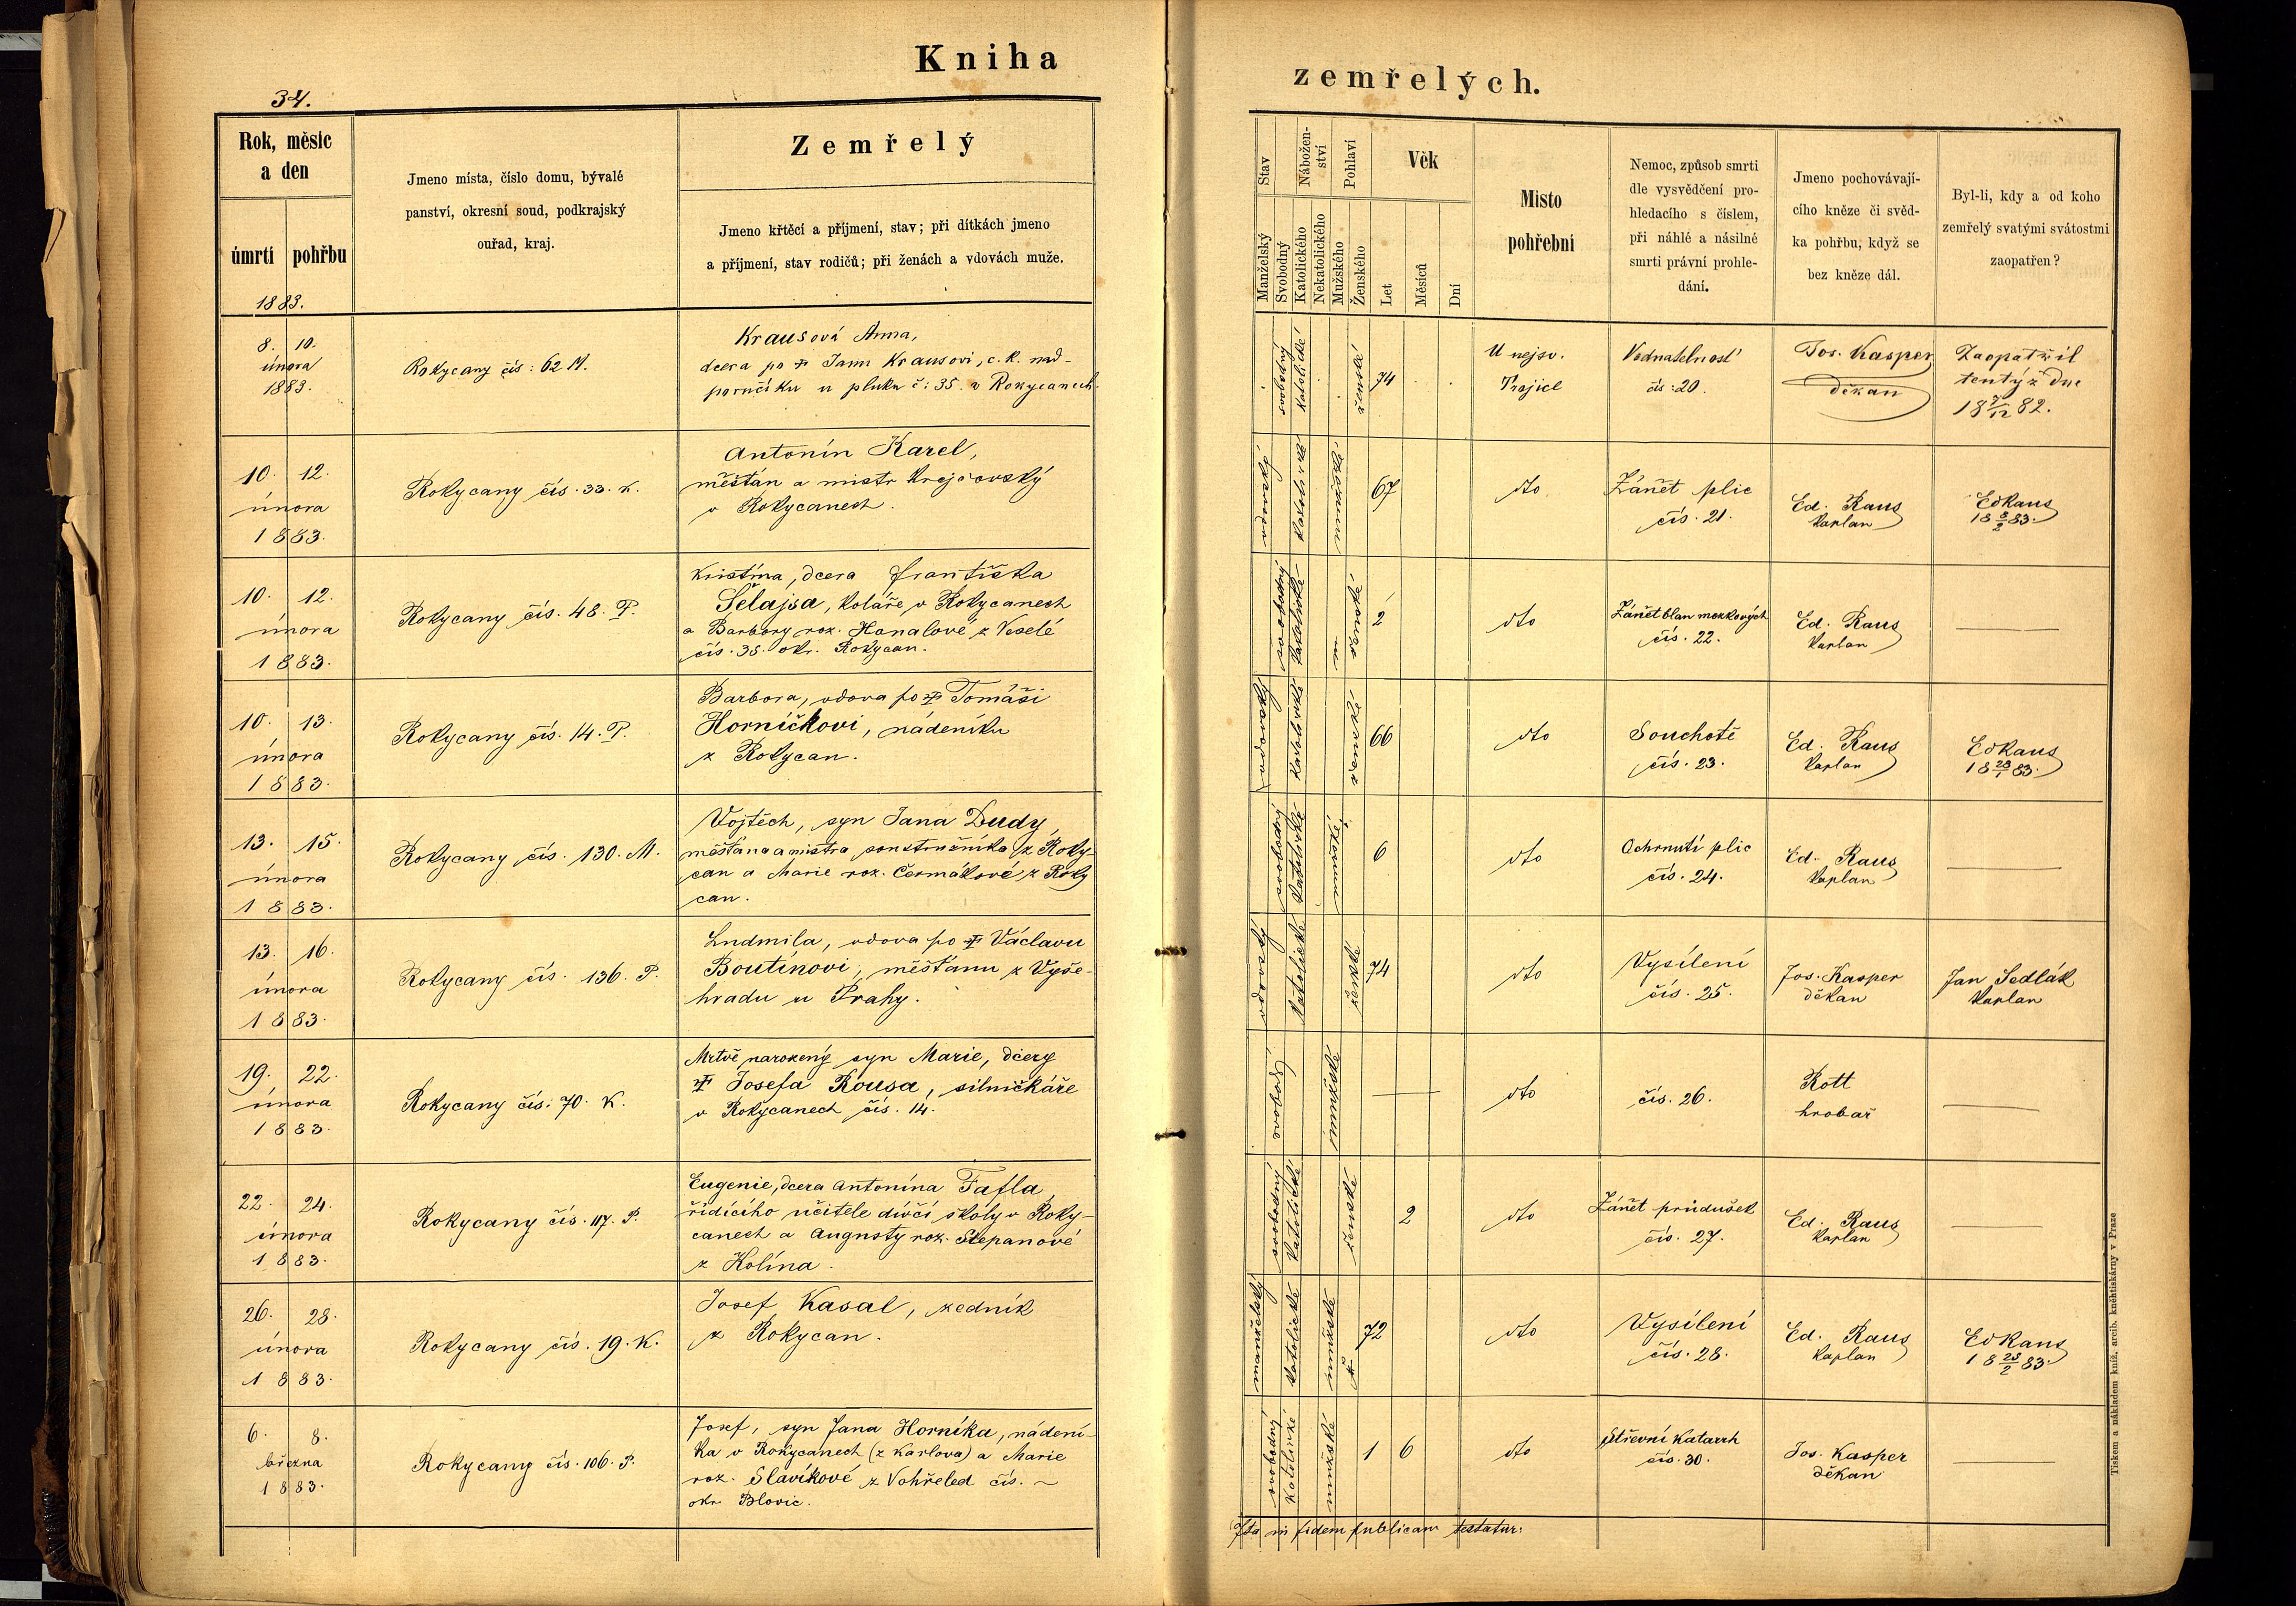 Kniha
34.
Rok, měsíc
a den
úmrtí
pohřbu
1883.
Jmeno místa, číslo domu, bývalé
panství, okresní soud, podkrajský
ouřad, kraj.
Zemřelý
Jmeno křtěcí a příjmení, stav; při dítkách jmeno
a příjmení, stav rodičů; při ženách a vdovách muže.
8. 10.
února
1883.
Rokycany čís: 62 M.
Krausová Anna,
dcera po Janu Krausovi, c. k. nad-
poručíku u pluku č: 35. v Rokycanech.
10. 12.
února
1883.
Rokycany čís. 33. K.
Antonín Karel,
měšťan a mistr krejčovský
v Rokycanech.
10. 12.
února
1883.
Rokycany čís. 48. P.
Kristina, dcera Františka
Šelajsa, koláře v Rokycanech
a Barbory roz. Hanalové z Veselé
čís. 35. okr. Rokycan.
10. 13.
února
1883.
Rokycany čís. 14. P.
Barbora, vdova po Tomáši
Horníčkovi, nádeníku
z Rokycan.
13. 15.
února
1883.
Rokycany čís. 130. M.
Vojtěch, syn Jana Dudy,
měšťana a mistra soustružníka z Roky-
can a Marie roz. Čermákové z Roky
can.
13. 16.
února
1883.
Rokycany čís. 136. P.
Ludmila, vdova po Václavu
Boutínovi, měšťanu z Vyše-
hradu u Prahy.
19. 22.
února
1883.
Rokycany čís. 70. K.
Mrtvě narozený syn Marie, dcery
Josefa Rousa, silničkáře
v Rokycanech čís. 14.
22. 24.
února
1883.
Rokycany čís. 117. P.
Eugenie, dcera Antonína Tafla
řídícího učitele dívčí školy v Roky-
canech a Augusty roz. Štěpanové
z Kolína.
26. 28.
února
1883.
Rokycany čís. 19. K.
Josef Kasal, zedník
z Rokycan.
6. 8.
března
1883.
Rokycany čís. 106. P.
Josef, syn Jana Horníka, nádení-
ka v Rokycanech (z Karlova) a Marie
roz. Slavíkové z Vohřeled čís. ~
okr. Blovic.
zemřelých.
Stav
Nábožen-
ství
Pohlaví
Věk
Manželský
Svobodný
Katolického
Nekatolického
Mužského
Ženského
Let
Měsíců
Dní
Místo
pohřební
Nemoc, způsob smrti
dle vysvědčení pro-
hledacího s číslem,
při náhlé a násilné
smrti právní prohle-
dání.
Jmeno pochovávají-
cího kněze či svěd-
ka pohřbu, když se
bez kněze dál.
Byl-li, kdy a od koho
zemřelý svatými svátostmi
zaopatřen?
svobodný katolické ženské 74
U nejsv.
Trojice
Vodnatelnost
čís: 20.
Jos. Kasper
děkan
Zaopatřil
tentýž dne
18 7/12 82.
vdovský katolické mužské 67
dto
Zánět plic
čís. 21.
Ed. Raus
kaplan
EdRaus
18 8/2 83.
svobodný katolické ženské 2
dto
Zánět blan mozkových
čís. 22.
Ed. Raus
kaplan
vdovský katolické ženské 66
dto
Souchotě
čís. 23.
Ed. Raus
kaplan
EdRaus
18 23/1 83.
svobodný katolické mužské 6
dto
Ochrnutí plic
čís. 24.
Ed. Raus
kaplan
vdovský katolické ženské 74
dto
Vysílení
čís. 25.
Jos. Kasper
děkan
Jan Sedlák
kaplan
svobodný mužské
dto
čís. 26.
Rott
hrobař
svobodný katolické ženské 2
dto
Zánět průdušek
čís. 27.
Ed. Raus
kaplan
manželský katolické mužské 72
dto
Vysílení
čís. 28.
Ed. Raus
kaplan
EdRaus
18 23/2 83.
svobodný katolické mužské 1 6
dto
Střevní katarrh
čís. 30.
Jos. Kasper
děkan
Ita in fidem publicam testatur:
Tiskem a nákladem kníž. arcib. kněhtiskárny v Praze